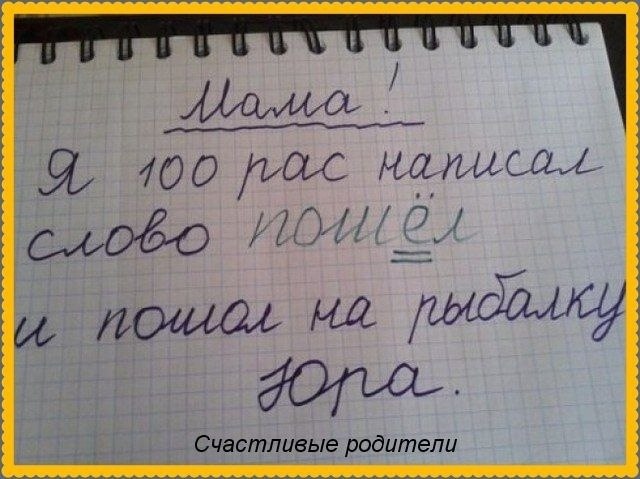 Мама!
Я 100 рас написал
слово пошёл
и пошол на рыбалку
Юра.
Счастливые родители